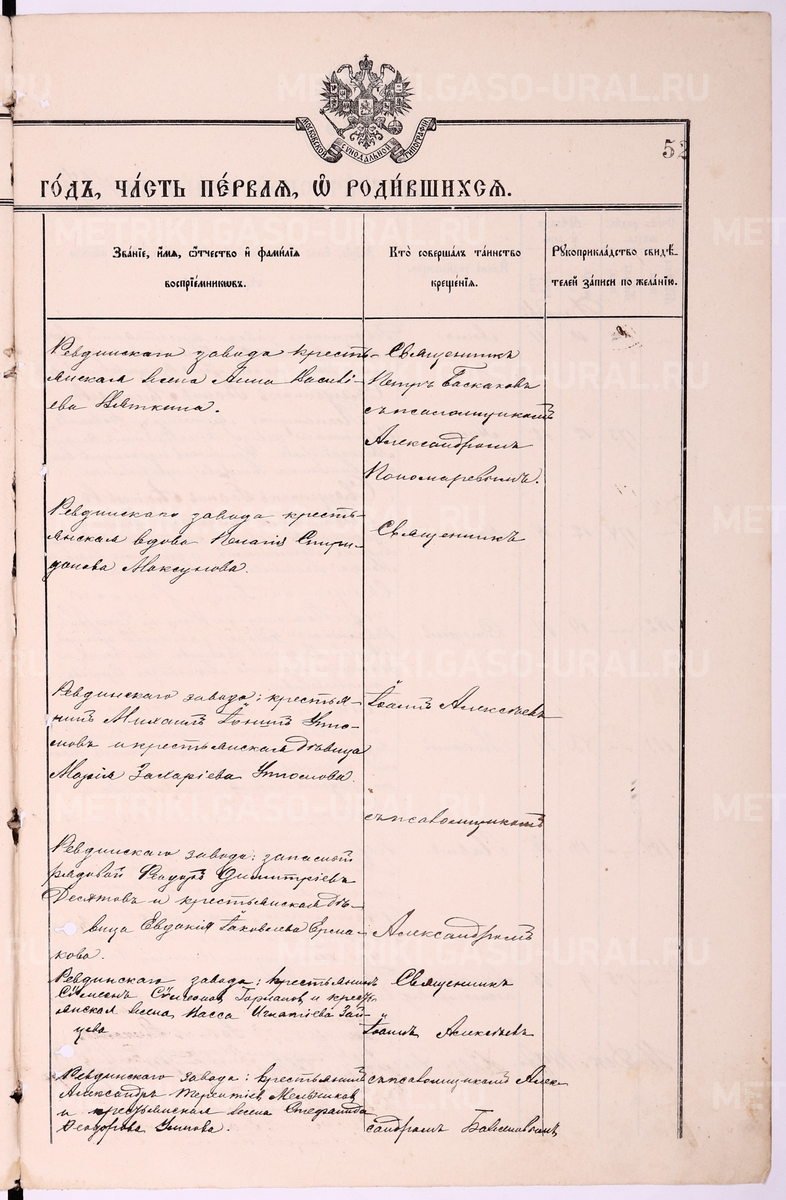 МОСКОВСКОЙ СѴНОДАЛЬНОЙ ТИПОГРАФІИ
52
го́дъ, ча́сть пе́рвая, ѡ҆ роди́вшихся.
Зва́нїе, и҆́мя, ѻ҆́тчество и҆ фами́лїя
воспрїе́мникѡвъ.
Кто̀ соверша́лъ та́инство
креще́нїя.
Рꙋкоприкла́дство свидѣ́-
телей за́писи по жела́нїю.
Ревдинскаго завода кресть-
янская жена Анна Василі-
ева Вяткина.
Священникъ
Петръ Баскаковъ
съ псаломщикомъ
Александромъ
Пономаревымъ.
Ревдинскаго завода кресть-
янская вдова Пелагія Спири-
донова Максунова.
Священникъ
Ревдинскаго завода: крестья-
нинъ Михаилъ
и крестьянская дѣвица
Марія Захаріева
Іоаннъ Алексѣевъ
съ псаломщикомъ
Ревдинскаго завода: запасный
рядовой Ѳеодоръ Димитріевъ
Десятовъ и крестьянская дѣ-
вица Евдокія Іаковлева Ерма-
кова.
Александромъ
Ревдинскаго завода: крестьянинъ
Сѵмеонъ Сѵмеоновъ и кресть-
янская жена Васса Игнатіева Зай-
цева
Священникъ
Іоаннъ Алексѣевъ
Ревдинскаго завода: крестьянинъ
Александръ Терентіевъ Мельниковъ
и крестьянская жена Стефанида
Ѳеодорова
съ псаломщикомъ Алек-
сандромъ
METRIKI.GASO-URAL.RU